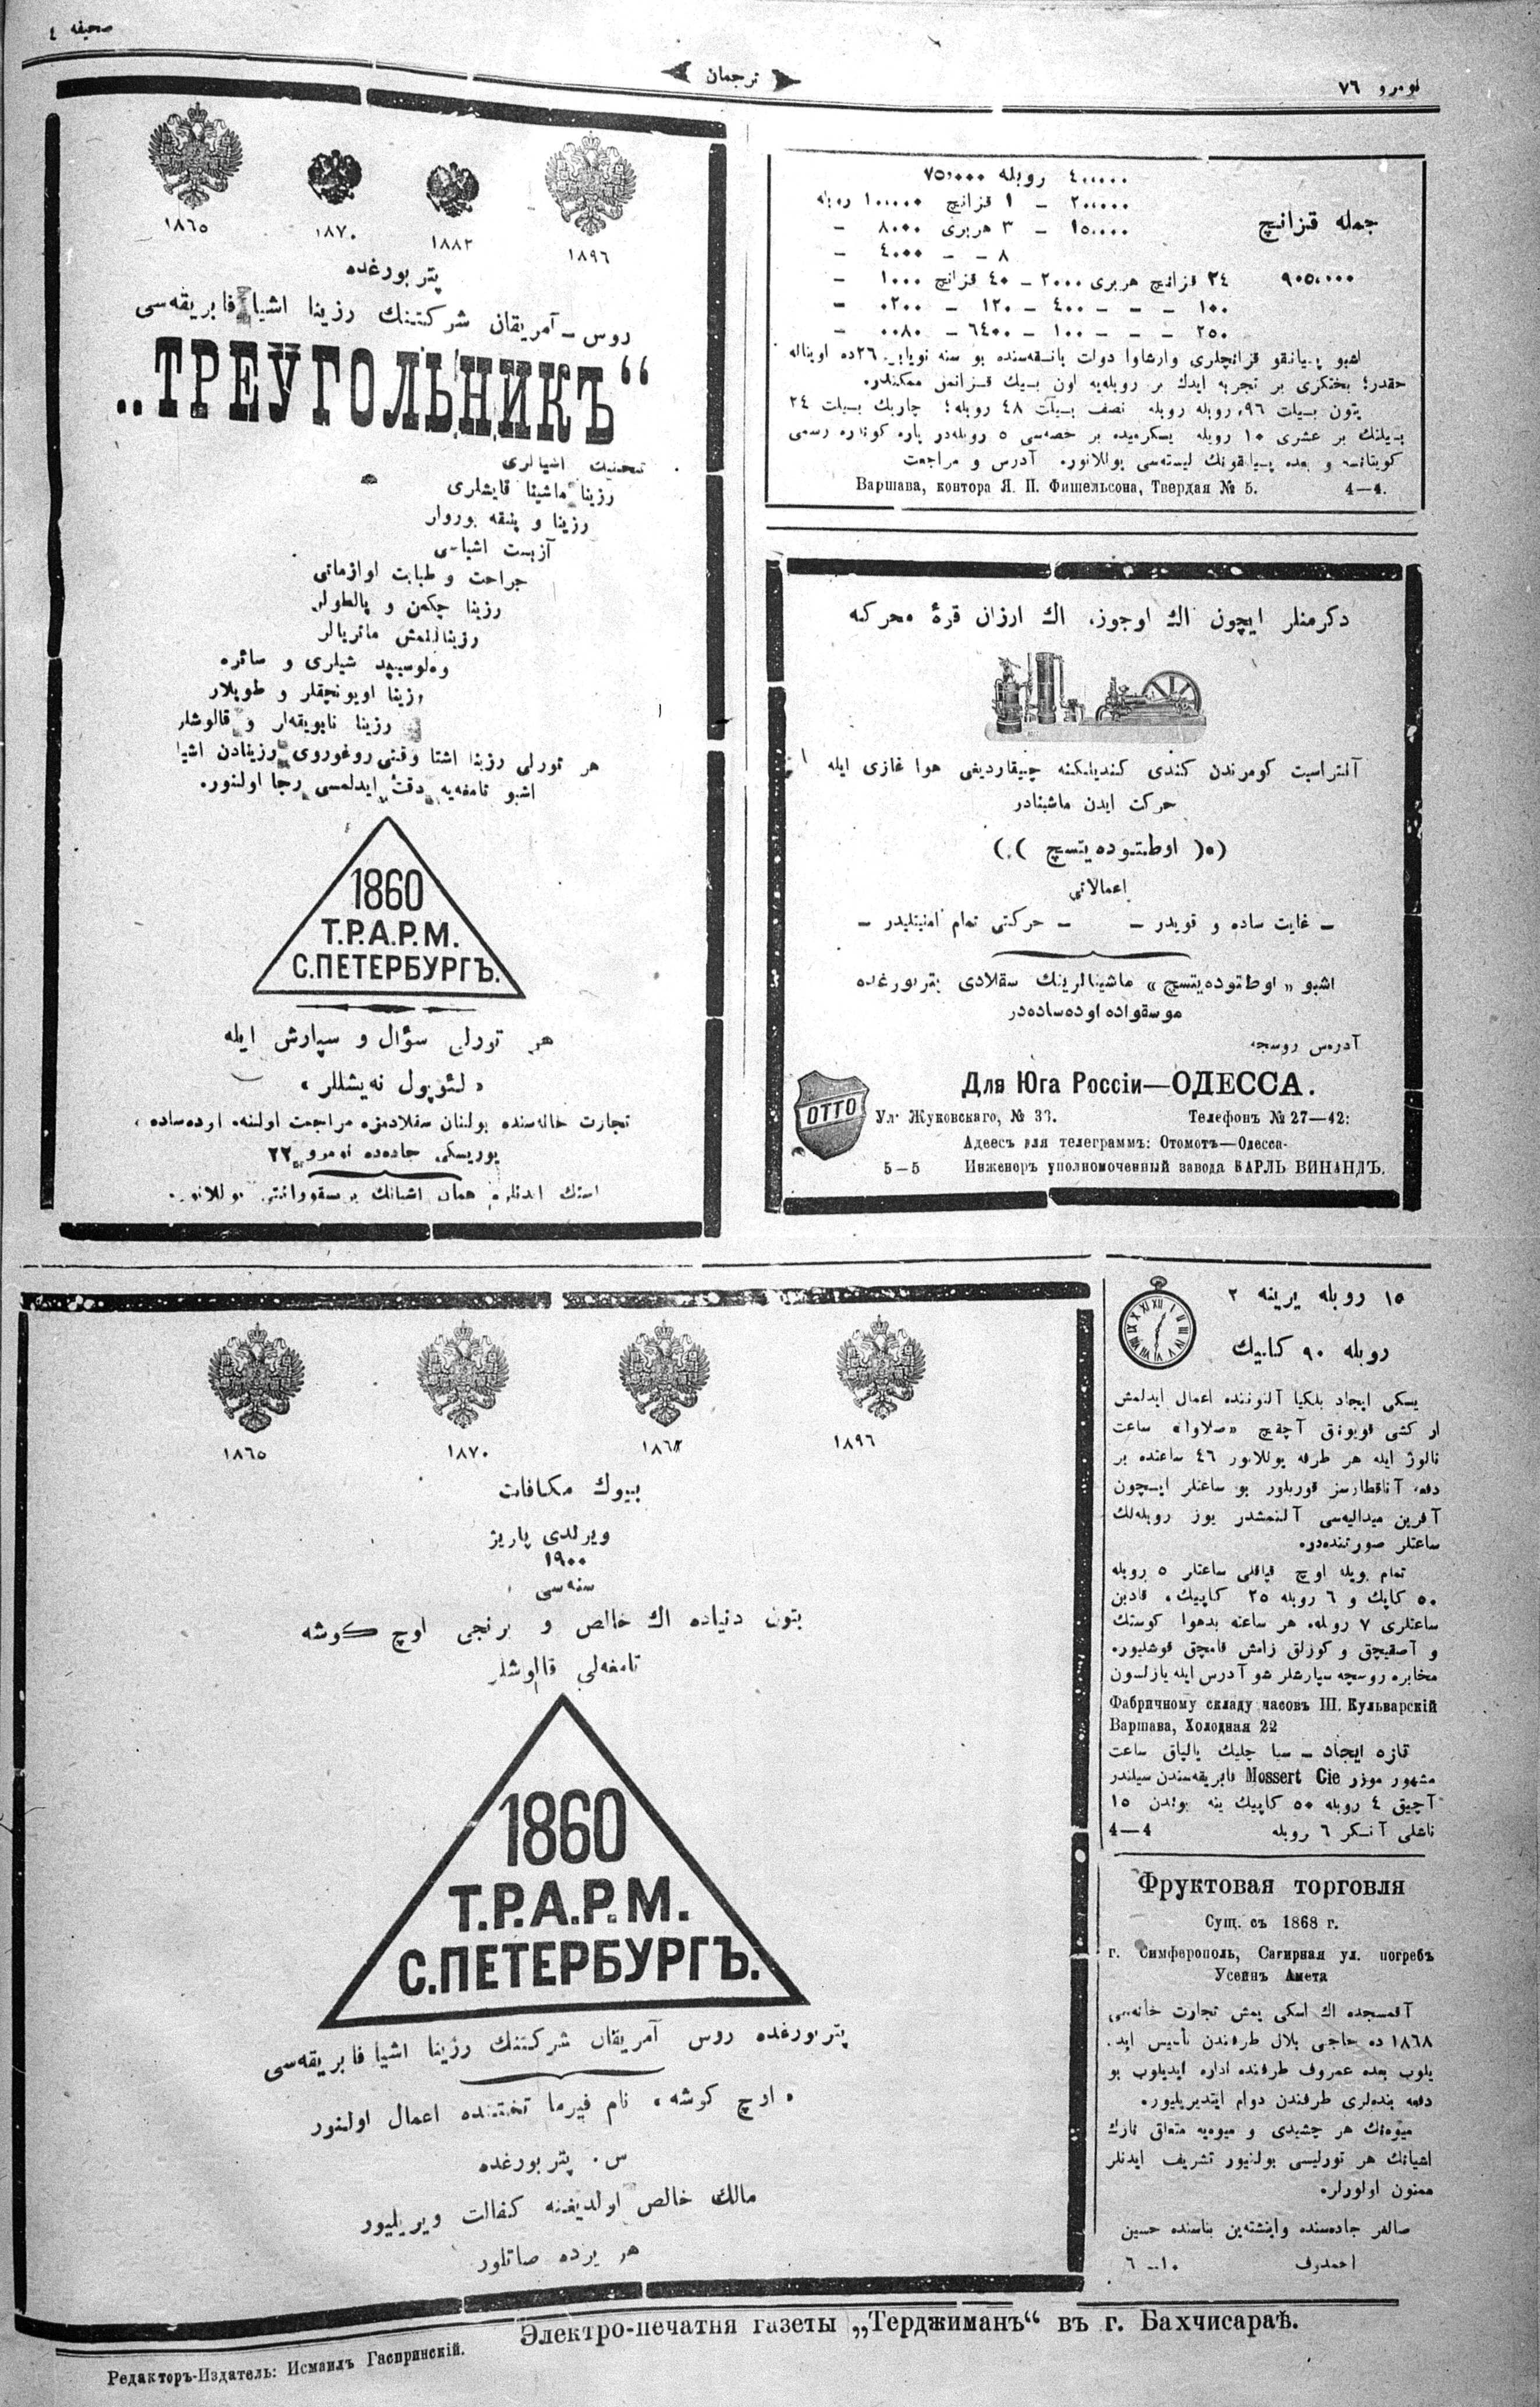 نومرو ٧٦
ترجمان
صحیفه ٤
٤٠٠٠٠٠ روبله ٧٥٠٠٠٠
٢٠٠٠٠٠ – ١ قزانچ ١٠٠٠٠٠ روبله
جمله قزانچ
١٥٠٠٠٠ – ٣ هربری ٨٠٠٠ –
٨ – – ٤٠٠٠ –
٩٠٥٠٠٠٠
٢٤ قزانچ هربری ٢٠٠٠ – ٤٠ قزانچ ١٠٠٠ –
١٠٠ – – ٤٠٠ – ١٢٠ – ٠٢٠٠ –
٢٥٠ – – – ١٠٠ – ٦٤٠٠ – ٠٠٨٠ –
اشبو قزانچلری وارشاوا دولت بانقه‌سنده بو سنه نویابر ٢٦ده اویناله
حقدر؛ بختکزی بر تجربه ایدك بر روبله‌یه اون بیك قزانمق ممکندر.
بتون بیلت ٩٦ روبله روبله نصف بیلت ٤٨ روبله؛ چاریك بیلت ٢٤
بیلتك بر عشری ١٠ روبله یکرمیده بر حصه‌سی ٥ روبله‌در پاره رسمی
و بعده لیسته‌سی یوللانور. آدرس و مراجعت
Варшава, контора Я. П. Фишельсона, Твердая № 5. 4—4.
دکرمنلر ایچون اك اوجوز، اك ارزان قوۀ محرکه
آنتراسیت کومرندن کندی کندیلکنه چیقاردیغی هوا غازی ایله
حرکت ایدن ماشینادر
(٥( اوطتوده‌یتسچ )٠)
اعمالاتی
– غایت ساده و قویدر – – حرکتی تمام امنیتلیدر –
اشبو «اوطتوده‌یتسچ» ماشینالرینك سقلادی پتربورغده
موسقواده اوده‌ساده‌در
آدرس روسجه
OTTO
Для Юга Россіи—ОДЕССА.
Ул. Жуковскаго, № 33. Телефонъ № 27—42:
Адеесъ для телеграммъ: Отомотъ—Одесса-
5—5 Инженоръ уполномоченный завода КАРЛЬ ВИНАНДЪ.
١٨٦٥ ١٨٧٠ ١٨٨٢ ١٨٩٦
پتربورغده
روس – آمریقان شرکتنك رزینا اشیا فابریقه‌سی
„ТРЕУГОЛЬНИКЪ“
تخنیك اشیالری
رزینا ماشینا قایشلری
رزینا و پنبقه بورولر
آزبست اشیاسی
جراحت و طبابت لوازماتی
رزینا چکمن و پالطولر
رزینالنمش ماتریالر
وه‌لوسیپد شیلری و سائره
رزینا اویونچقلر و طوپلار
رزینا نابویقه‌لر و قالوشلر
هر تورلی رزینا اشیا وقتی روغوروی رزینادن اشیا
اشبو تامغه‌یه دقت ایدلمسی رجا اولنور.
1860
Т.Р.А.Р.М.
С.ПЕТЕРБУРГЪ.
هر تورلی سؤال و سپارش ایله
«لئوپول نه‌یشللر»
تجارت خانه‌سنده بولنان سقلادمزه مراجعت اولنه. اوده‌ساده،
پوریسکی جاده‌ده نومرو ٢٢
١٨٦٥ ١٨٧٠ ١٨٨٢ ١٨٩٦
بیوك مکافات
ویرلدی پاریژ
١٩٠٠
سنه‌سی
بتون دنیاده اك خالص و برنجی اوچ کوشه
تامغه‌لی قالوشلر
1860
Т.Р.А.Р.М.
С.ПЕТЕРБУРГЪ.
پتربورغده روس آمریقان شرکتنك رزینا اشیا فابریقه‌سی
«اوچ کوشه» نام فیرما تختنده اعمال اولنور
س. پتربورغده
مالك خالص اولدیغنه کفالت ویریلیور
هر یرده صاتلور
١٥ روبله یرینه ٢
روبله ٩٠ کاپیك
یسکی ایجاد بلکیا آلتوننده اعمال ایدلمش
ار کشی قویوناق آچقیچ «صلاوا» ساعت
نالوژ ایله هر طرفه یوللانور ٤٦ ساعتده بر
دفعه آناقطارسز قوریلور بو ساعتلر ایچون
آفرین میدالیه‌سی آلنمشدر یوز روبله‌لك
ساعتلر صورتنده‌در.
تمام بویله اوچ قپاقلی ساعتلر ٥ روبله
٥٠ کاپك و ٦ روبله ٢٥ کاپیك، قادین
ساعتلری ٧ روبله. هر ساعته بدهوا کوستك
و آصقیچق و کوزلق زامش قامچق قوشلیور.
مخابره روسچه سپارشلر شو آدرس ایله یازلسون
Фабричному складу часовъ Ш. Кульварскій
Варшава, Холодная 22
تازه ایجاد – سبا چلیك یالپاق ساعت
مشهور موزر Mossert Cie فابریقه‌سندن سیلندر
آچیق ٤ روبله ٥٠ کاپیك ینه بوندن ١٥
تاشلی آنکر ٦ روبله 4—4
Фруктовая торговля
Сущ. съ 1868 г.
г. Симферополь, Сагирная ул. погребъ
Усеинъ Амета
آقمسجده اك اسکی یمش تجارت خانه‌سی
١٨٦٨ ده حاجی بلال طرفندن تأسیس اید.
یلوب بعده عمروف طرفنده اداره ایدیلوب بو
دفعه بنده‌لری طرفندن دوام ایتدیریلیور.
میوه‌نك هر چشیدی و میوه‌یه متعلق نازك
اشیانك هر تورلیسی بولنیور تشریف ایدنلر
ممنون اولورلر.
صالغر جاده‌سنده واینشته‌ین بناسنده حسین
احمدوف ١٠–٦
Электро-печатня газеты „Терджиманъ“ въ г. Бахчисараѣ.
Редакторъ-Издатель: Исмаилъ Гаспринскій.